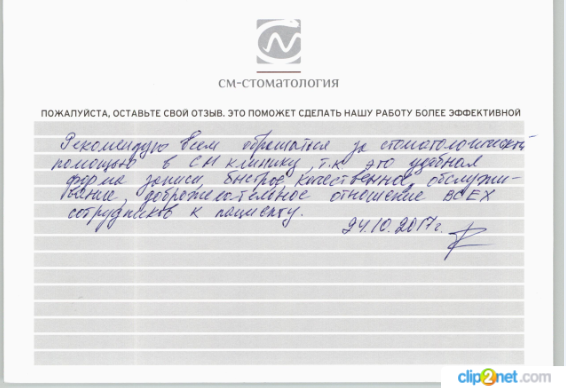 СМ-СТОМАТОЛОГИЯ
ПОЖАЛУЙСТА, ОСТАВЬТЕ СВОЙ ОТЗЫВ. ЭТО ПОМОЖЕТ СДЕЛАТЬ НАШУ РАБОТУ БОЛЕЕ ЭФФЕКТИВНОЙ
Рекомендую всем обращаться за стоматологической
помощью в СМ клинику, т.к. это удобная
форма записи, быстрое качественное обслужи-
вание, доброжелательное отношение ВСЕХ
сотрудников к пациенту.
24.10.2017г.
clip2net.com